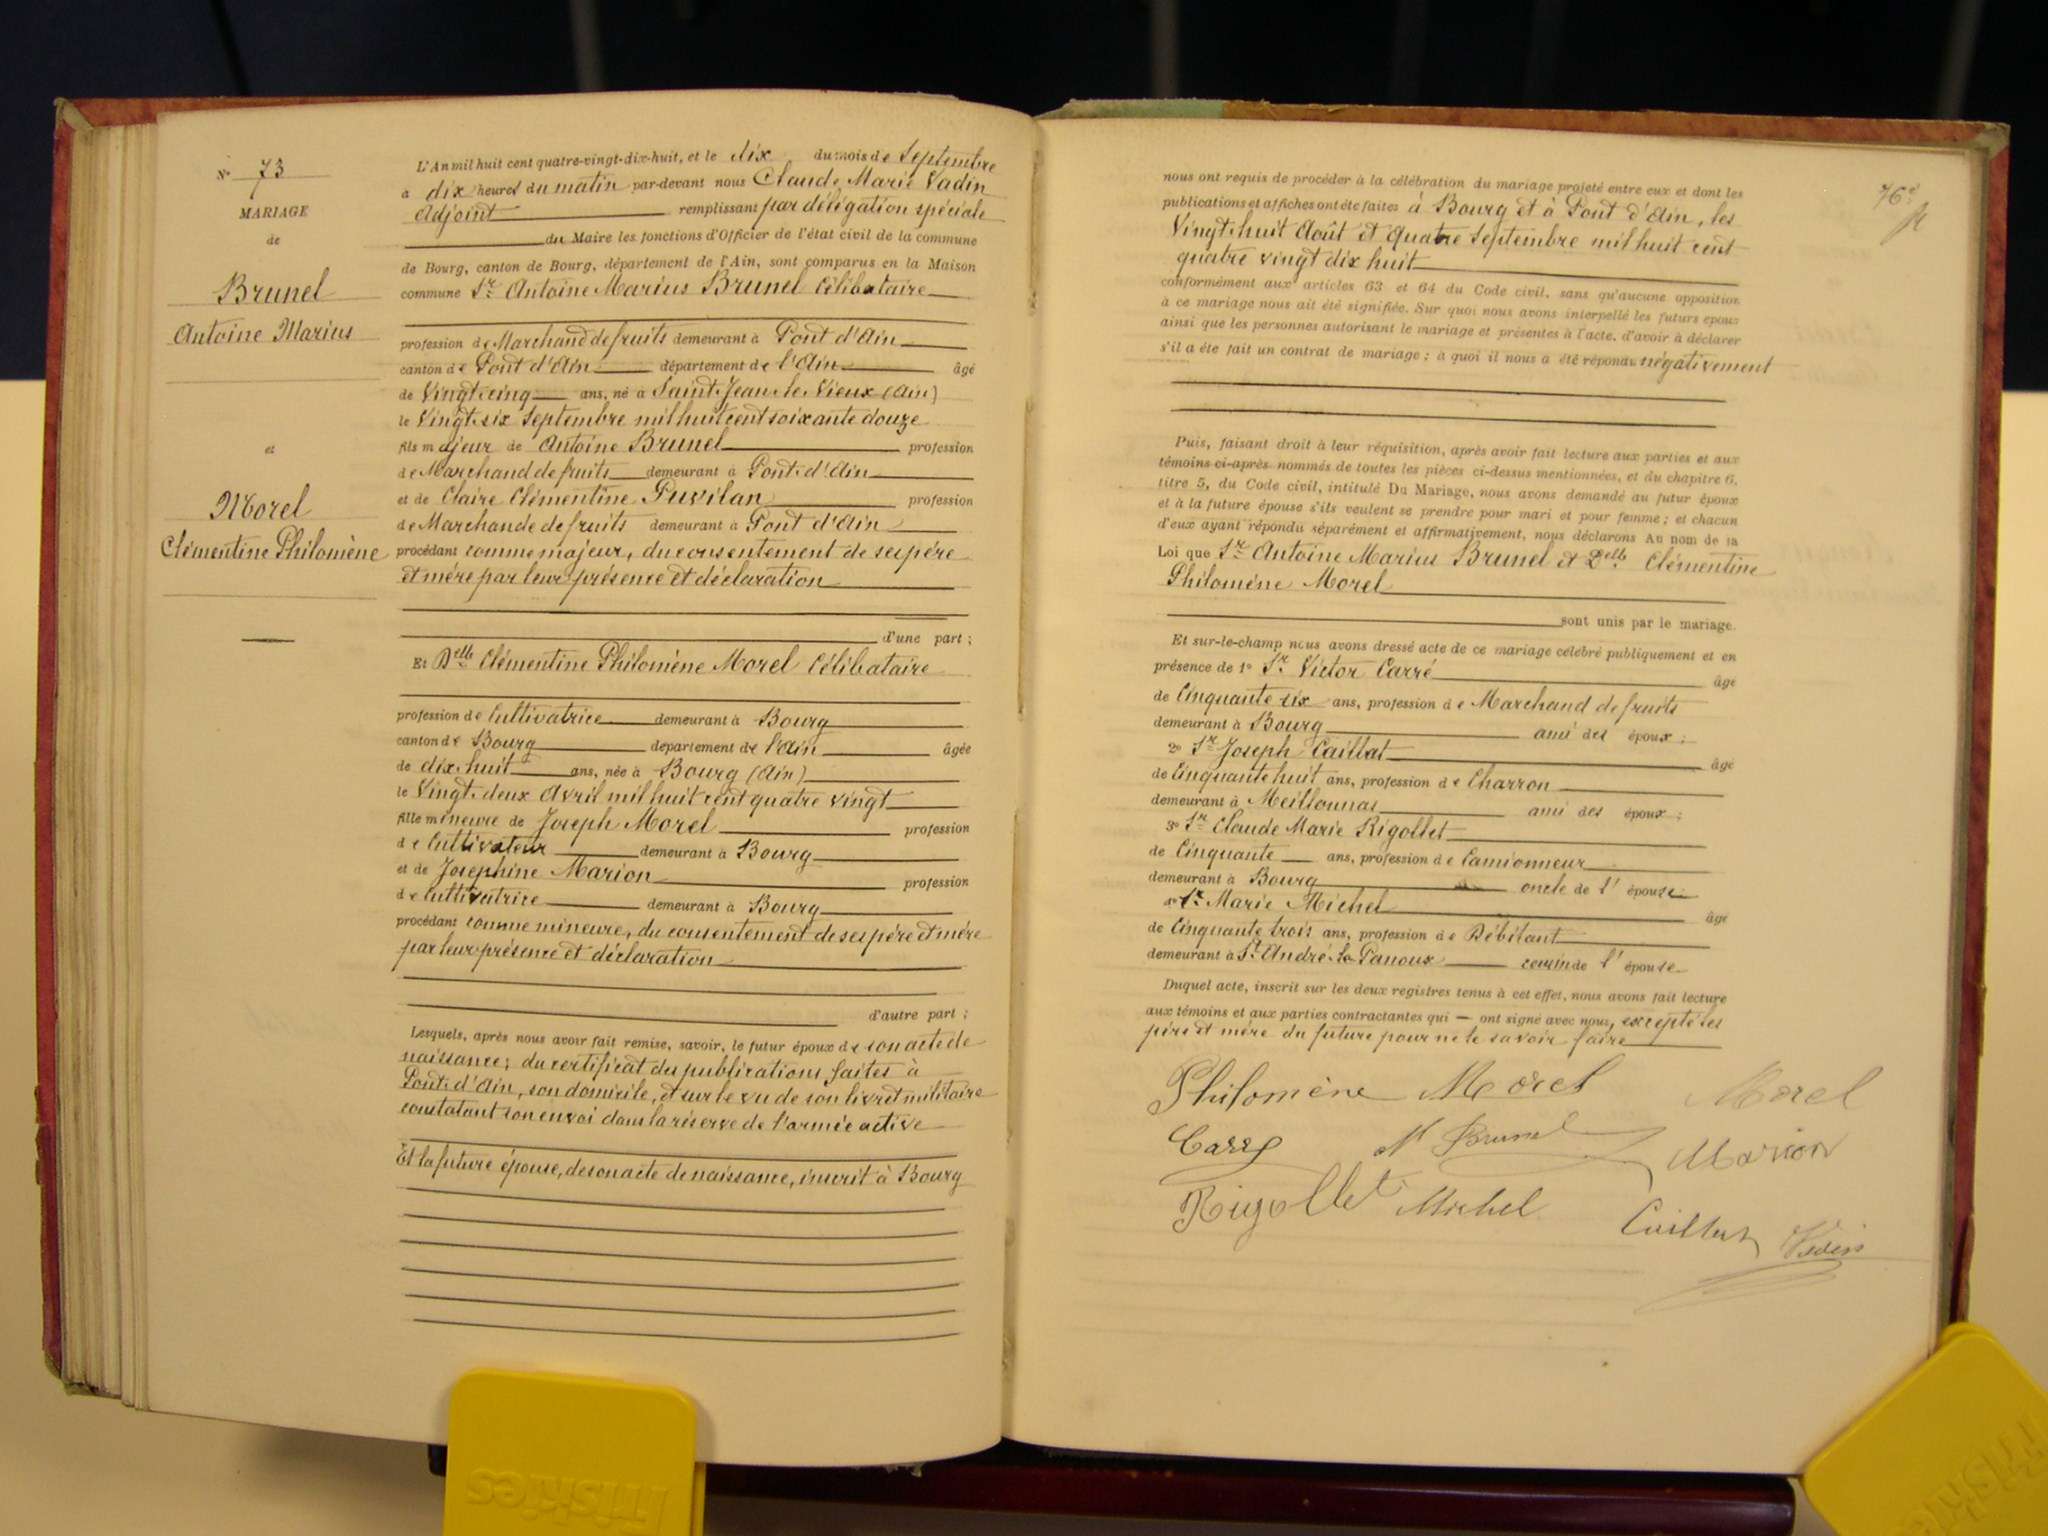 N° 73
MARIAGE
de
Brunel
Antoine Marius
et
Morel
Clémentine Philomène
L'An mil huit cent quatre-vingt-dix-huit, et le dix du mois de Septembre
à dix heures du matin par-devant nous Claude Marie Vadin
Adjoint remplissant par délégation spéciale
du Maire les fonctions d'Officier de l'état civil de la commune
de Bourg, canton de Bourg, département de l'Ain, sont comparus en la Maison
commune Sr Antoine Marius Brunel Célibataire
profession de Marchand de fruits demeurant à Pont d'Ain
canton de Pont d'Ain département de l'Ain âgé
de Vingt-cinq ans, né à Saint-Jean-le-Vieux (Ain)
le Vingt-six Septembre mil huit cent soixante douze
fils majeur de Antoine Brunel profession
de Marchand de fruits demeurant à Pont-d'Ain
et de Claire Clémentine Puvilan profession
de Marchande de fruits demeurant à Pont d'Ain
procédant comme majeur, du consentement de ses père
et mère par leur présence et déclaration
d'une part ;
Et Delle Clémentine Philomène Morel Célibataire
profession de Cultivatrice demeurant à Bourg
canton de Bourg département de l'Ain âgée
de dix-huit ans, née à Bourg (Ain)
le Vingt-deux Avril mil huit cent quatre vingt
fille mineure de Joseph Morel profession
de Cultivateur demeurant à Bourg
et de Josephine Marion profession
de Cultivatrice demeurant à Bourg
procédant comme mineure, du consentement de ses père et mère
par leur présence et déclaration
d'autre part ;
Lesquels, après nous avoir fait remise, savoir, le futur époux de son acte de
naissance ; du certificat des publications faites à
Pont-d'Ain, son domicile, et sur le vu de son livret militaire
constatant son envoi dans la réserve de l'armée active
Et la future épouse, de son acte de naissance, inscrit à Bourg
76e
nous ont requis de procéder à la célébration du mariage projeté entre eux et dont les
publications et affiches ont été faites à Bourg et à Pont d'Ain, les
Vingt-huit Août et quatre Septembre mil huit cent
quatre vingt dix huit
conformément aux articles 63 et 64 du Code civil, sans qu'aucune opposition
à ce mariage nous ait été signifiée. Sur quoi nous avons interpellé les futurs époux
ainsi que les personnes autorisant le mariage et présentes à l'acte, d'avoir à déclarer
s'il a été fait un contrat de mariage ; à quoi il nous a été répondu négativement
Puis, faisant droit à leur réquisition, après avoir fait lecture aux parties et aux
témoins ci-après nommés de toutes les pièces ci-dessus mentionnées, et du chapitre 6,
titre 5, du Code civil, intitulé Du Mariage, nous avons demandé au futur époux
et à la future épouse s'ils veulent se prendre pour mari et pour femme ; et chacun
d'eux ayant répondu séparément et affirmativement, nous déclarons Au nom de la
Loi que Sr Antoine Marius Brunel et Delle Clémentine
Philomène Morel
sont unis par le mariage.
Et sur-le-champ nous avons dressé acte de ce mariage célébré publiquement et en
présence de 1° Sr Victor Carré âgé
de Cinquante six ans, profession de Marchand de fruits
demeurant à Bourg ami des époux ;
2° Sr Joseph Caillat âgé
de Cinquante huit ans, profession de Charron
demeurant à Meillonnas ami des époux ;
3° Sr Claude Marie Rigollet
de Cinquante ans, profession de Camionneur
demeurant à Bourg oncle de l'épouse
4° Sr Marie Michel âgé
de Cinquante trois ans, profession de Débitant
demeurant à St André-le-Panoux cousin de l'épouse
Duquel acte, inscrit sur les deux registres tenus à cet effet, nous avons fait lecture
aux témoins et aux parties contractantes qui — ont signé avec nous, excepté les
père et mère du futur pour ne le savoir faire
Philomène Morel Morel
Carré M Brunel Marion
Rigollet Michel Caillat Vadin
Friskies
Friskies